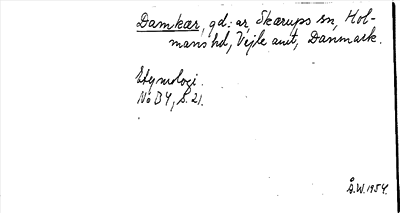 Damkær, gd:ar, Skærups sn, Hol-
mans hd, Vejle amt, Danmark.
Etymologi.
NoB 4, S. 21.
Å.W. 1954.